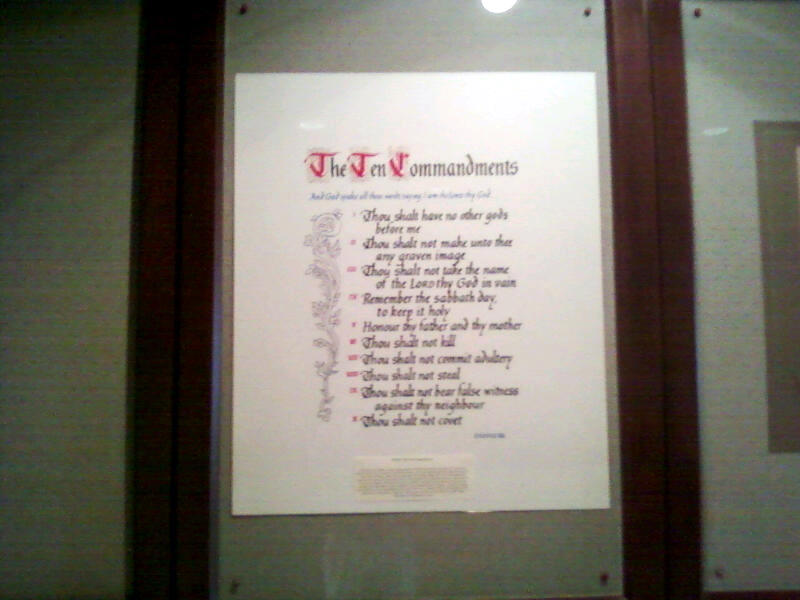 The Ten Commandments
And God spake all these words saying I am the LORD thy God
I Thou shalt have no other gods
before me
II Thou shalt not make unto thee
any graven image
III Thou shalt not take the name
of the LORD thy God in vain
IV Remember the sabbath day,
to keep it holy
V Honour thy father and thy mother
VI Thou shalt not kill
VII Thou shalt not commit adultery
VIII Thou shalt not steal
IX Thou shalt not bear false witness
against thy neighbour
X Thou shalt not covet